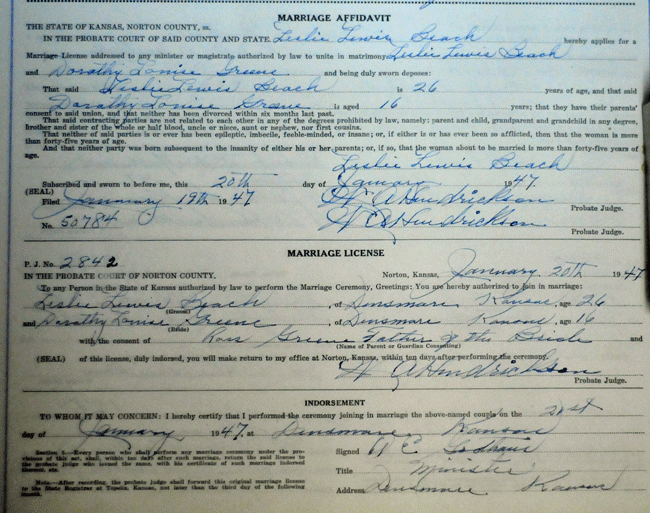 MARRIAGE AFFIDAVIT
THE STATE OF KANSAS, NORTON COUNTY, ss.
IN THE PROBATE COURT OF SAID COUNTY AND STATE. Leslie Lewis Beach hereby applies for a
Marriage License addressed to any minister or magistrate authorized by law to unite in matrimony Leslie Lewis Beach
and Dorathy Louise Greene and being duly sworn deposes:
That said Leslie Lewis Beach is 26 years of age, and that said
Dorathy Louise Greene is aged 16 years; that they have their parents'
consent to said union, and that neither has been divorced within six months last past.
That said contracting parties are not related to each other in any of the degrees prohibited by law, namely: parent and child, grandparent and grandchild in any degree,
brother and sister of the whole or half blood, uncle or niece, aunt or nephew, nor first cousins.
That neither of said parties is or ever has been epileptic, imbecile, feeble-minded, or insane; or, if either is or has ever been so afflicted, then that the woman is more
than forty-five years of age.
And that neither party was born subsequent to the insanity of either his or her parents; or, if so, that the woman about to be married is more than forty-five years of
age.
Leslie Lewis Beach
Subscribed and sworn to before me, this 20th day of January 1947.
(SEAL)
Filed January 19th 1947 W A Hendrickson
Probate Judge.
No. 50784 W A Hendrickson
Probate Judge.
MARRIAGE LICENSE
P. J. No. 2842
IN THE PROBATE COURT OF NORTON COUNTY. Norton, Kansas, January 20th 1947
To any Person in the State of Kansas authorized by law to perform the Marriage Ceremony, Greetings: You are hereby authorized to join in marriage:
Leslie Lewis Beach, of Densmore Kansas, age 26
(Groom)
and Dorathy Louise Greene, of Densmore Kansas, age 16
(Bride)
with the consent of Ross Greene Father of the Bride and
(Name of Parent or Guardian Consenting)
(SEAL) of this license, duly indorsed, you will make return to my office at Norton, Kansas, within ten days after performing the ceremony.
W A Hendrickson
Probate Judge.
INDORSEMENT
TO WHOM IT MAY CONCERN: I hereby certify that I performed the ceremony joining in marriage the above-named couple on the 21st
day of January, 1947, at Densmore Kansas
Section 5.—Every person who shall perform any marriage ceremony under the pro-
visions of this act, shall, within ten days after such marriage, return the said license to
the probate judge who issued the same, with his certificate of such marriage indorsed
thereon, etc.
Signed W C
Title Minister
Note.—After recording, the probate judge shall forward this original marriage license
to the State Registrar at Topeka, Kansas, not later than the third day of the following
month.
Address Densmore Kansas